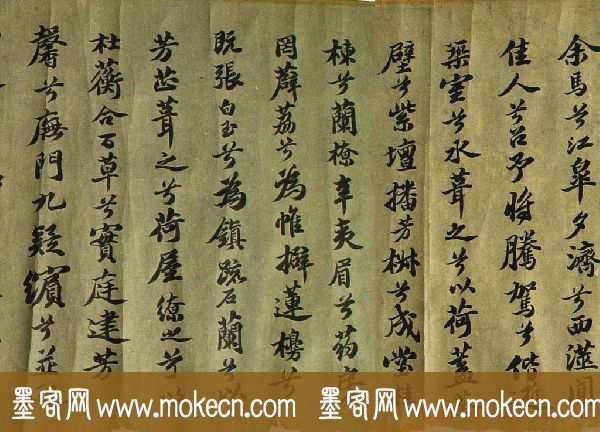 余馬兮江皋夕濟兮西澨聞
佳人兮召予將騰駕兮偕
築室兮水葺之兮以荷蓋
壁兮紫壇播芳椒兮成堂
棟兮蘭橑辛夷眉兮药房
罔薜荔兮為帷擗蓮櫋兮
既張白玉兮為鎮疏石蘭兮
芳芷葺之兮荷屋繚之兮
杜蘅合百草兮實庭建芳
馨兮廡門九疑繽兮並
墨客网 www.mokecn.com 墨客网 www.mokecn.com